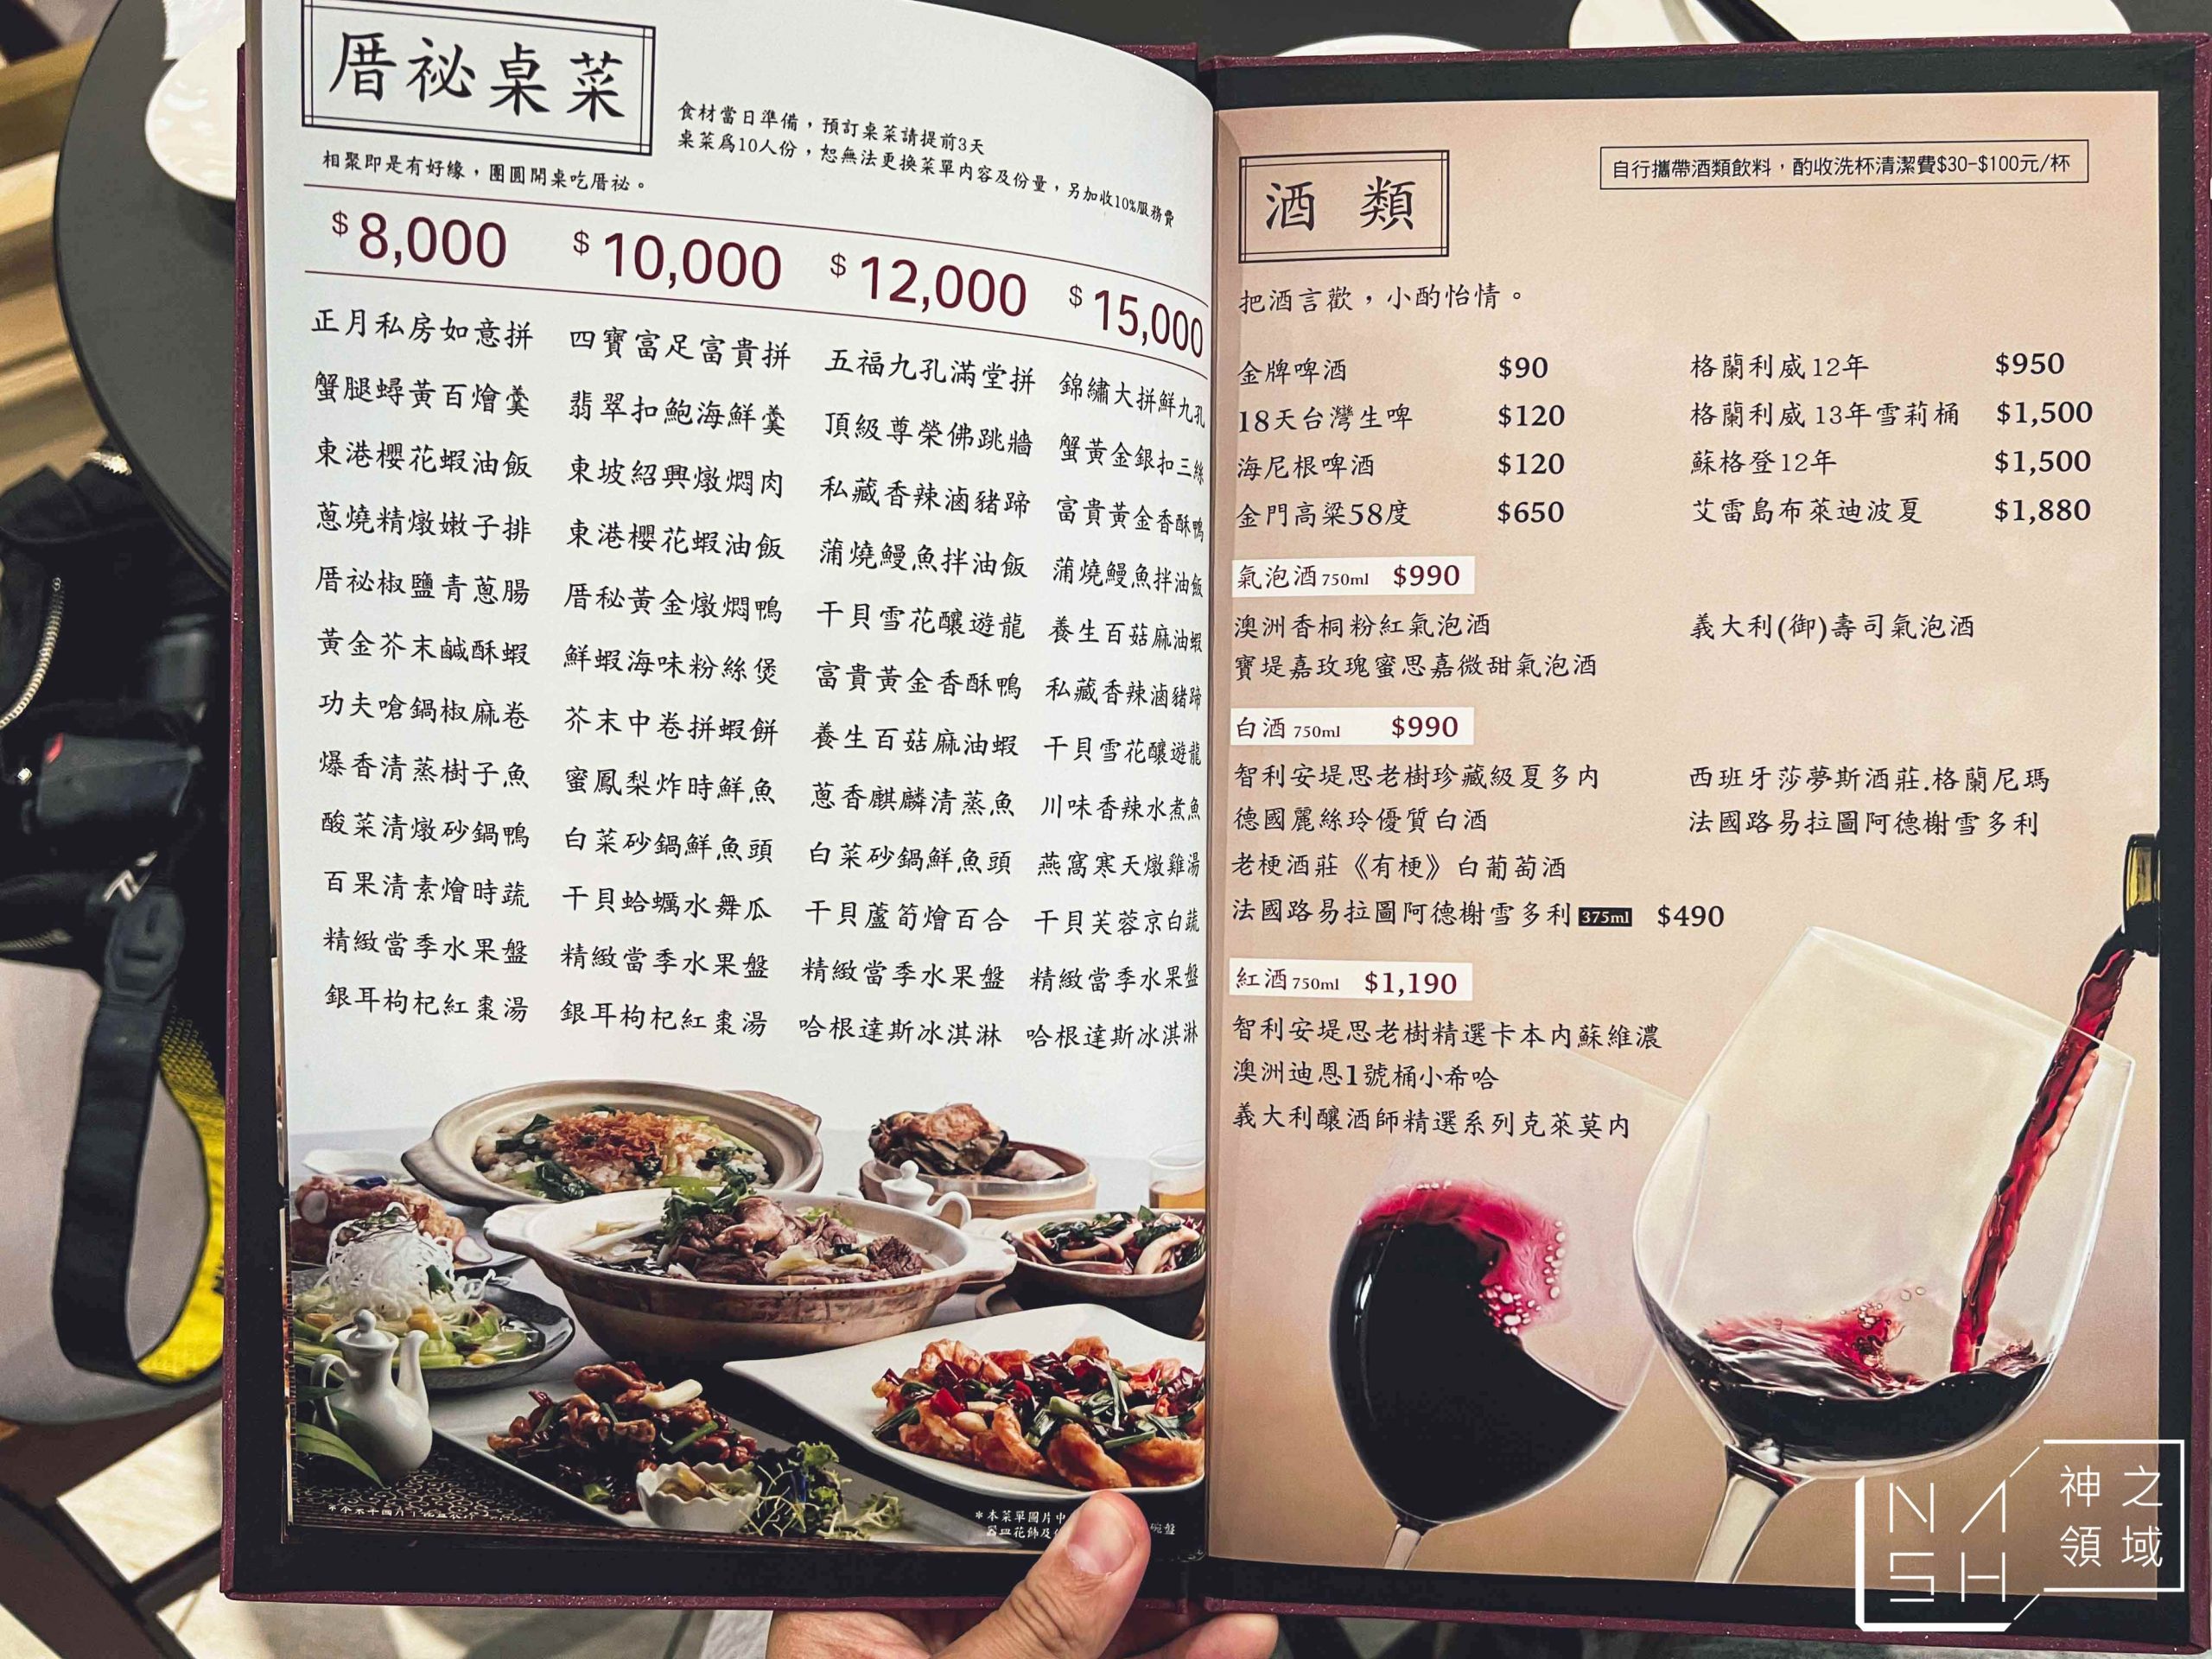 厝祕桌菜
食材當日準備，預訂桌菜請提前3天
桌菜爲10人份，恕無法更換菜單內容及份量，另加收10%服務費
相聚即是有好緣，團圓開桌吃厝祕。
$8,000 $10,000 $12,000 $15,000
正月私房如意拼 四寶富足富貴拼 五福九孔滿堂拼 錦繡大拼鮮九孔
蟹腿蟳黃百燴羹 翡翠扣鮑海鮮羹 頂級尊榮佛跳牆 蟹黃金銀扣三絲
東港櫻花蝦油飯 東坡紹興燉燜肉 私藏香辣滷豬蹄 富貴黃金香酥鴨
蔥燒精燉嫩子排 東港櫻花蝦油飯 蒲燒鰻魚拌油飯 蒲燒鰻魚拌油飯
厝祕椒鹽青蔥腸 厝秘黃金燉燜鴨 干貝雪花釀遊龍 養生百菇麻油蝦
黃金芥末鹹酥蝦 鮮蝦海味粉絲煲 富貴黃金香酥鴨 私藏香辣滷豬蹄
功夫嗆鍋椒麻卷 芥末中卷拼蝦餅 養生百菇麻油蝦 干貝雪花釀遊龍
爆香清蒸樹子魚 蜜鳳梨炸時鮮魚 蔥香麒麟清蒸魚 川味香辣水煮魚
酸菜清燉砂鍋鴨 白菜砂鍋鮮魚頭 白菜砂鍋鮮魚頭 燕窩寒天燉雞湯
百果清素燴時蔬 干貝蛤蠣水舞瓜 干貝蘆筍燴百合 干貝芙蓉京白蔬
精緻當季水果盤 精緻當季水果盤 精緻當季水果盤 精緻當季水果盤
銀耳枸杞紅棗湯 銀耳枸杞紅棗湯 哈根達斯冰淇淋 哈根達斯冰淇淋
*本菜單圖片中
器皿花飾及
碗盤
自行攜帶酒類飲料，酌收洗杯清潔費$30-$100元/杯
酒類
把酒言歡，小酌怡情。
金牌啤酒 $90 格蘭利威12年 $950
18天台灣生啤 $120 格蘭利威 13年雪莉桶 $1,500
海尼根啤酒 $120 蘇格登12年 $1,500
金門高粱58度 $650 艾雷島布萊迪波夏 $1,880
氣泡酒 750ml $990
澳洲香桐粉紅氣泡酒 義大利(御)壽司氣泡酒
寶堤嘉玫瑰蜜思嘉微甜氣泡酒
白酒 750ml $990
智利安堤思老樹珍藏級夏多內 西班牙莎夢斯酒莊.格蘭尼瑪
德國麗絲玲優質白酒 法國路易拉圖阿德榭雪多利
老梗酒莊《有梗》白葡萄酒
法國路易拉圖阿德榭雪多利 375ml $490
紅酒 750ml $1,190
智利安堤思老樹精選卡本內蘇維濃
澳洲迪恩1號桶小希哈
義大利釀酒師精選系列克萊莫內
NASH 神之領域